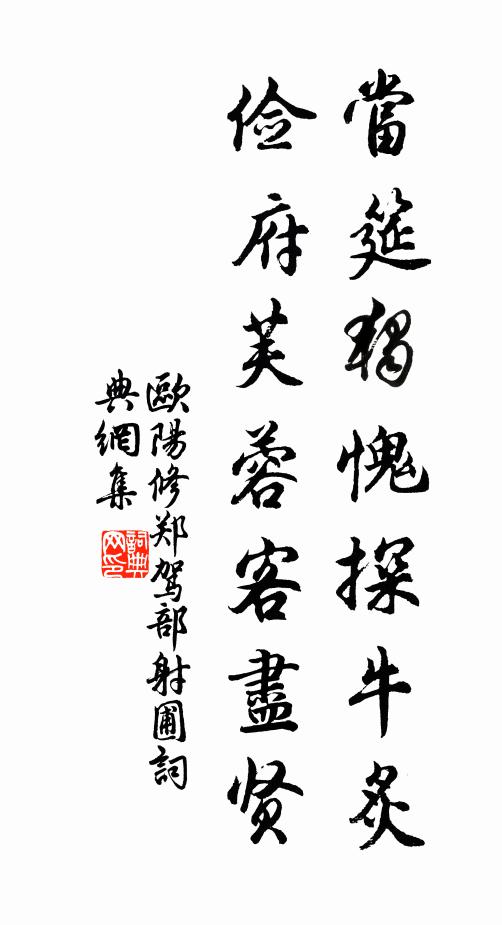 當筵獨愧探牛炙
俭府芙蓉客盡贤
歐陽修郑驾部射圃詞
典網集
詞典网印